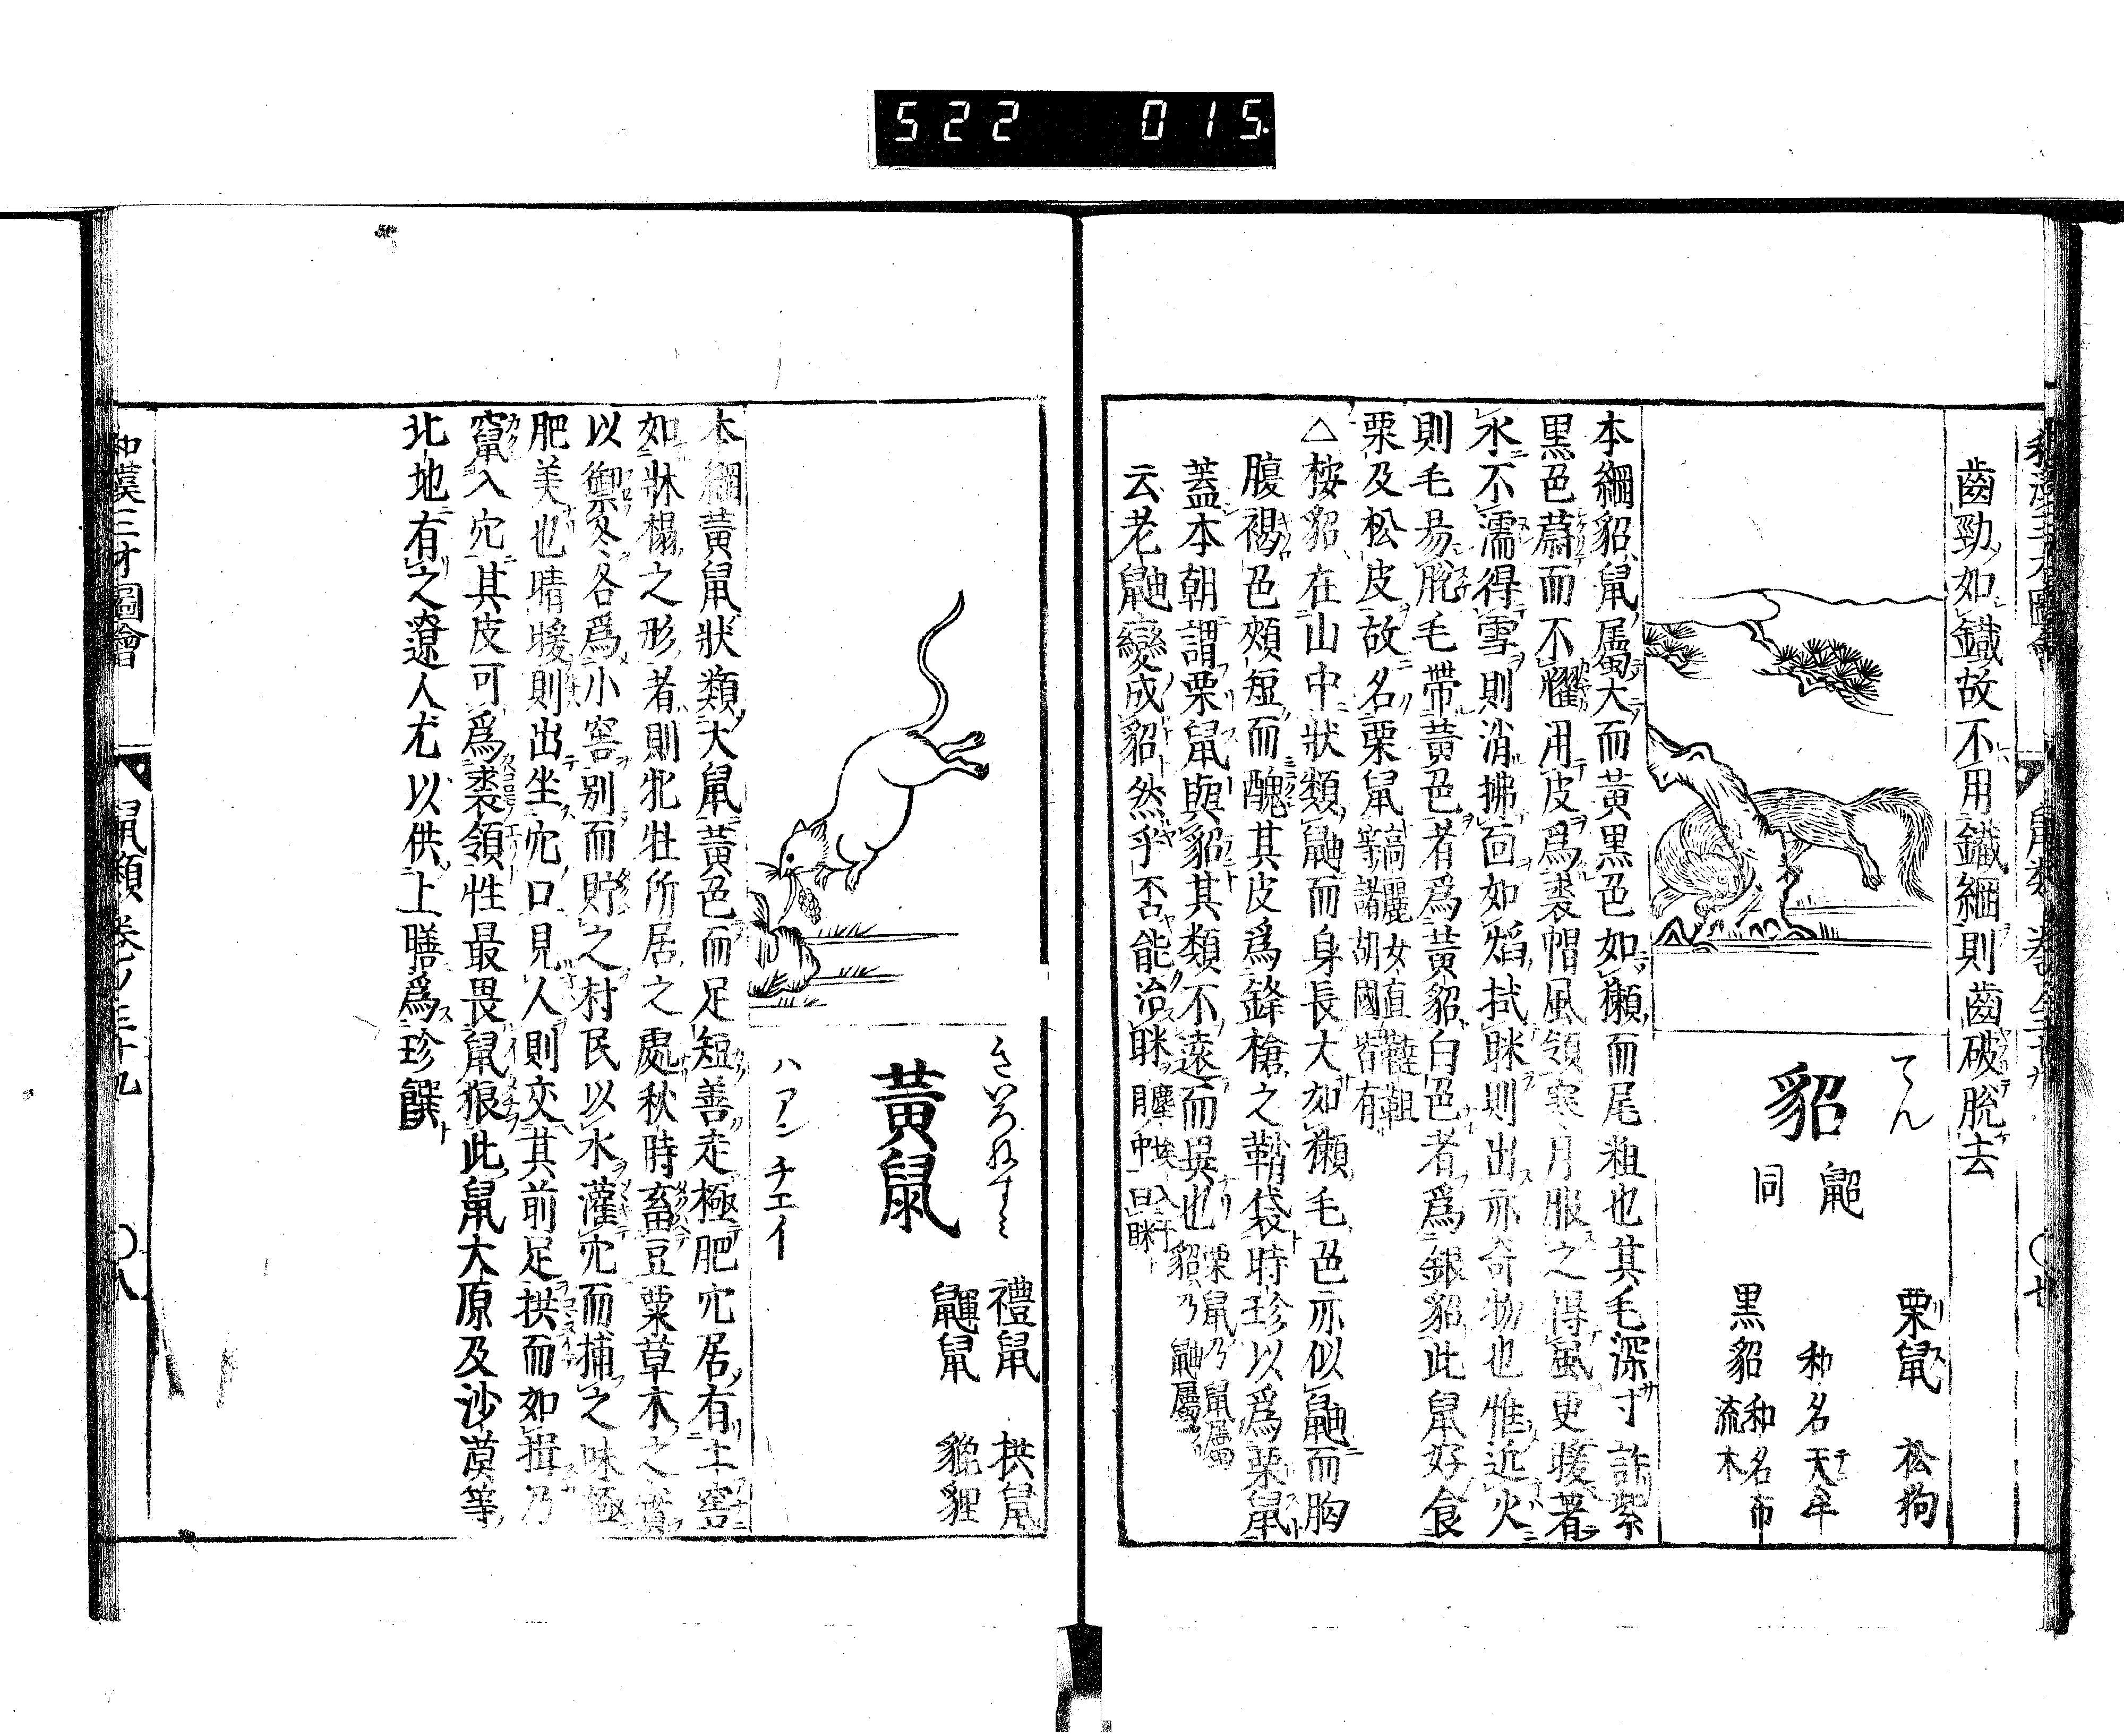 522 015.
和漢三才圖會 鼠類 卷ノ三十九 〇七
齒勁如鐵故不用鐵綱則齒破脫去
てん
貂
鼦
同
栗鼠 松狗
リス
和名天牟
テン
黒貂 和名布流木
本綱貂鼠屬大而黃黒色如獺而尾粗也其毛深寸許紫
黒色蔚而不耀用皮爲裘帽風領寒月服之得風更暖着
水不濡得雪則消拂面如焰拭眯則出亦奇物也惟近火
則毛易脫毛帶黃色者爲黃貂白色者爲銀貂此鼠好食
栗及松皮故名栗鼠高麗女直韃靼等諸胡國皆有
△桉貂在山中狀類鼬而身長大如獺毛色亦似鼬而胸
腹褐色頰短而醜其皮爲鋒槍之鞘袋時珍以爲栗鼠
蓋本朝謂栗鼠與貂其類不遠而異也栗鼠乃鼠屬貂乃鼬屬
云老鼬變成貂然乎否能治眯塵埃入于目中曰眯
きいろねすミ
黃鼠
ハアン チエイ
禮鼠 拱鼠
鼲鼠 貔貍
本綱黃鼠狀類大鼠黃色而足短善走極肥穴居有土窖
如牀榻之形者則牝牡所居之處秋時畜豆粟草木之實
以禦冬各爲小窖别而貯之村民以水灌穴而捕之味極
肥美也晴暖則出坐穴口見人則交其前足拱而如揖乃
竄入穴其皮可爲裘領性最畏鼠狼此鼠大原及沙漠等
北地有之遼人尤以供上膳爲珍饌
和漢三才圖會 鼠類 卷ノ三十九 〇八